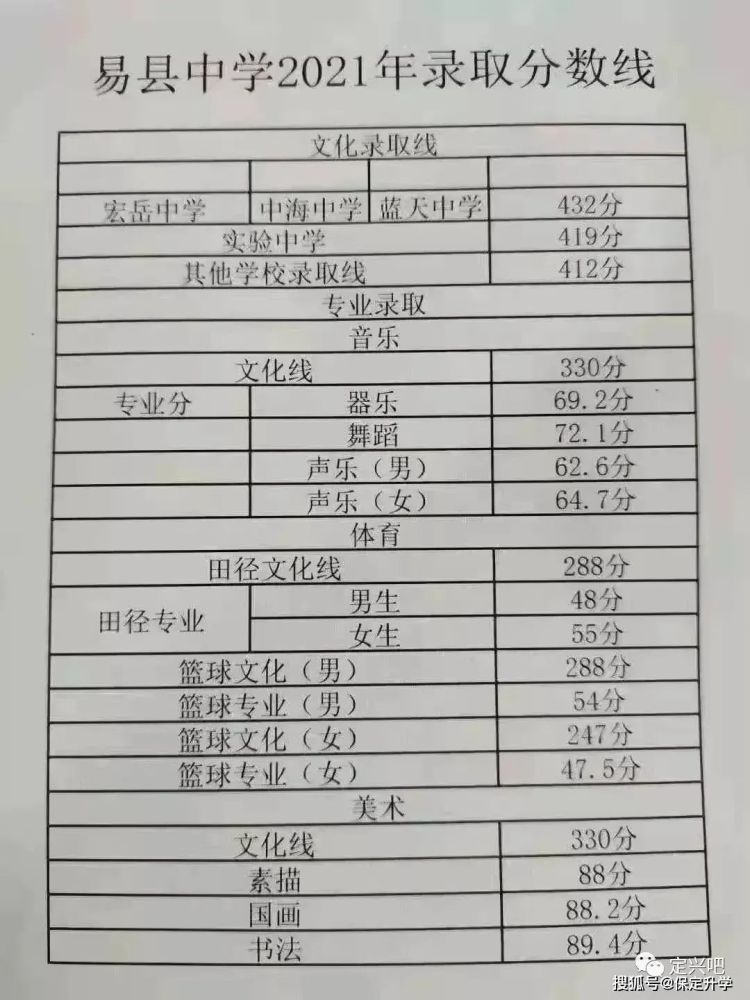 易县中学2021年录取分数线
文化录取线
宏岳中学 中海中学 蓝天中学 432分
实验中学 419分
其他学校录取线 412分
专业录取
音乐
文化线 330分
专业分 器乐 69.2分
舞蹈 72.1分
声乐（男） 62.6分
声乐（女） 64.7分
体育
田径文化线 288分
田径专业 男生 48分
女生 55分
篮球文化（男） 288分
篮球专业（男） 54分
篮球文化（女） 247分
篮球专业（女） 47.5分
美术
文化线 330分
素描 88分
国画 88.2分
书法 89.4分
定兴吧
搜狐号@保定升学